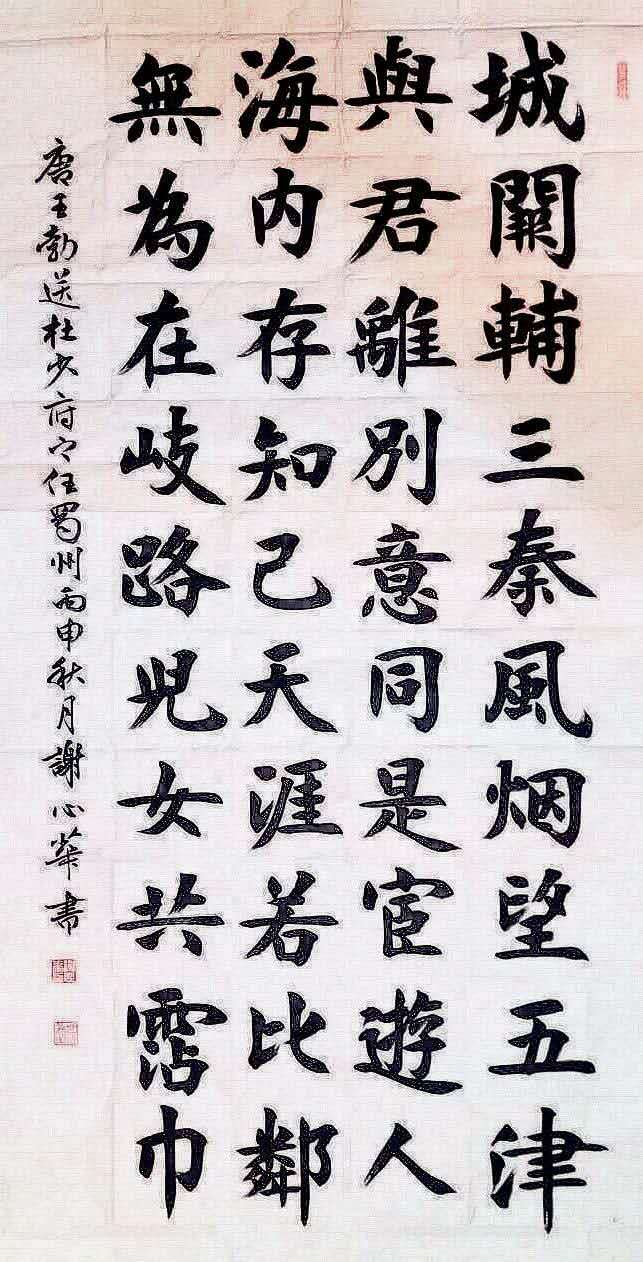 城闕輔三秦風烟望五津
與君離別意同是宦遊人
海内存知己天涯若比鄰
無為在岐路兒女共霑巾
唐王勃送杜少府之任蜀州丙申秋月謝心華書